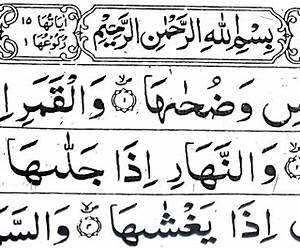 اٰیَاتُهَا ۱۵
رُکُوْعُهَا ۱
بِسْمِ اللّٰهِ الرَّحْمٰنِ الرَّحِیْمِ
وَضُحٰىهَا ۱ وَالْقَمَرِ
وَالنَّهَارِ اِذَا جَلّٰىهَا
اِذَا یَغْشٰىهَا ۴ وَالسَّ